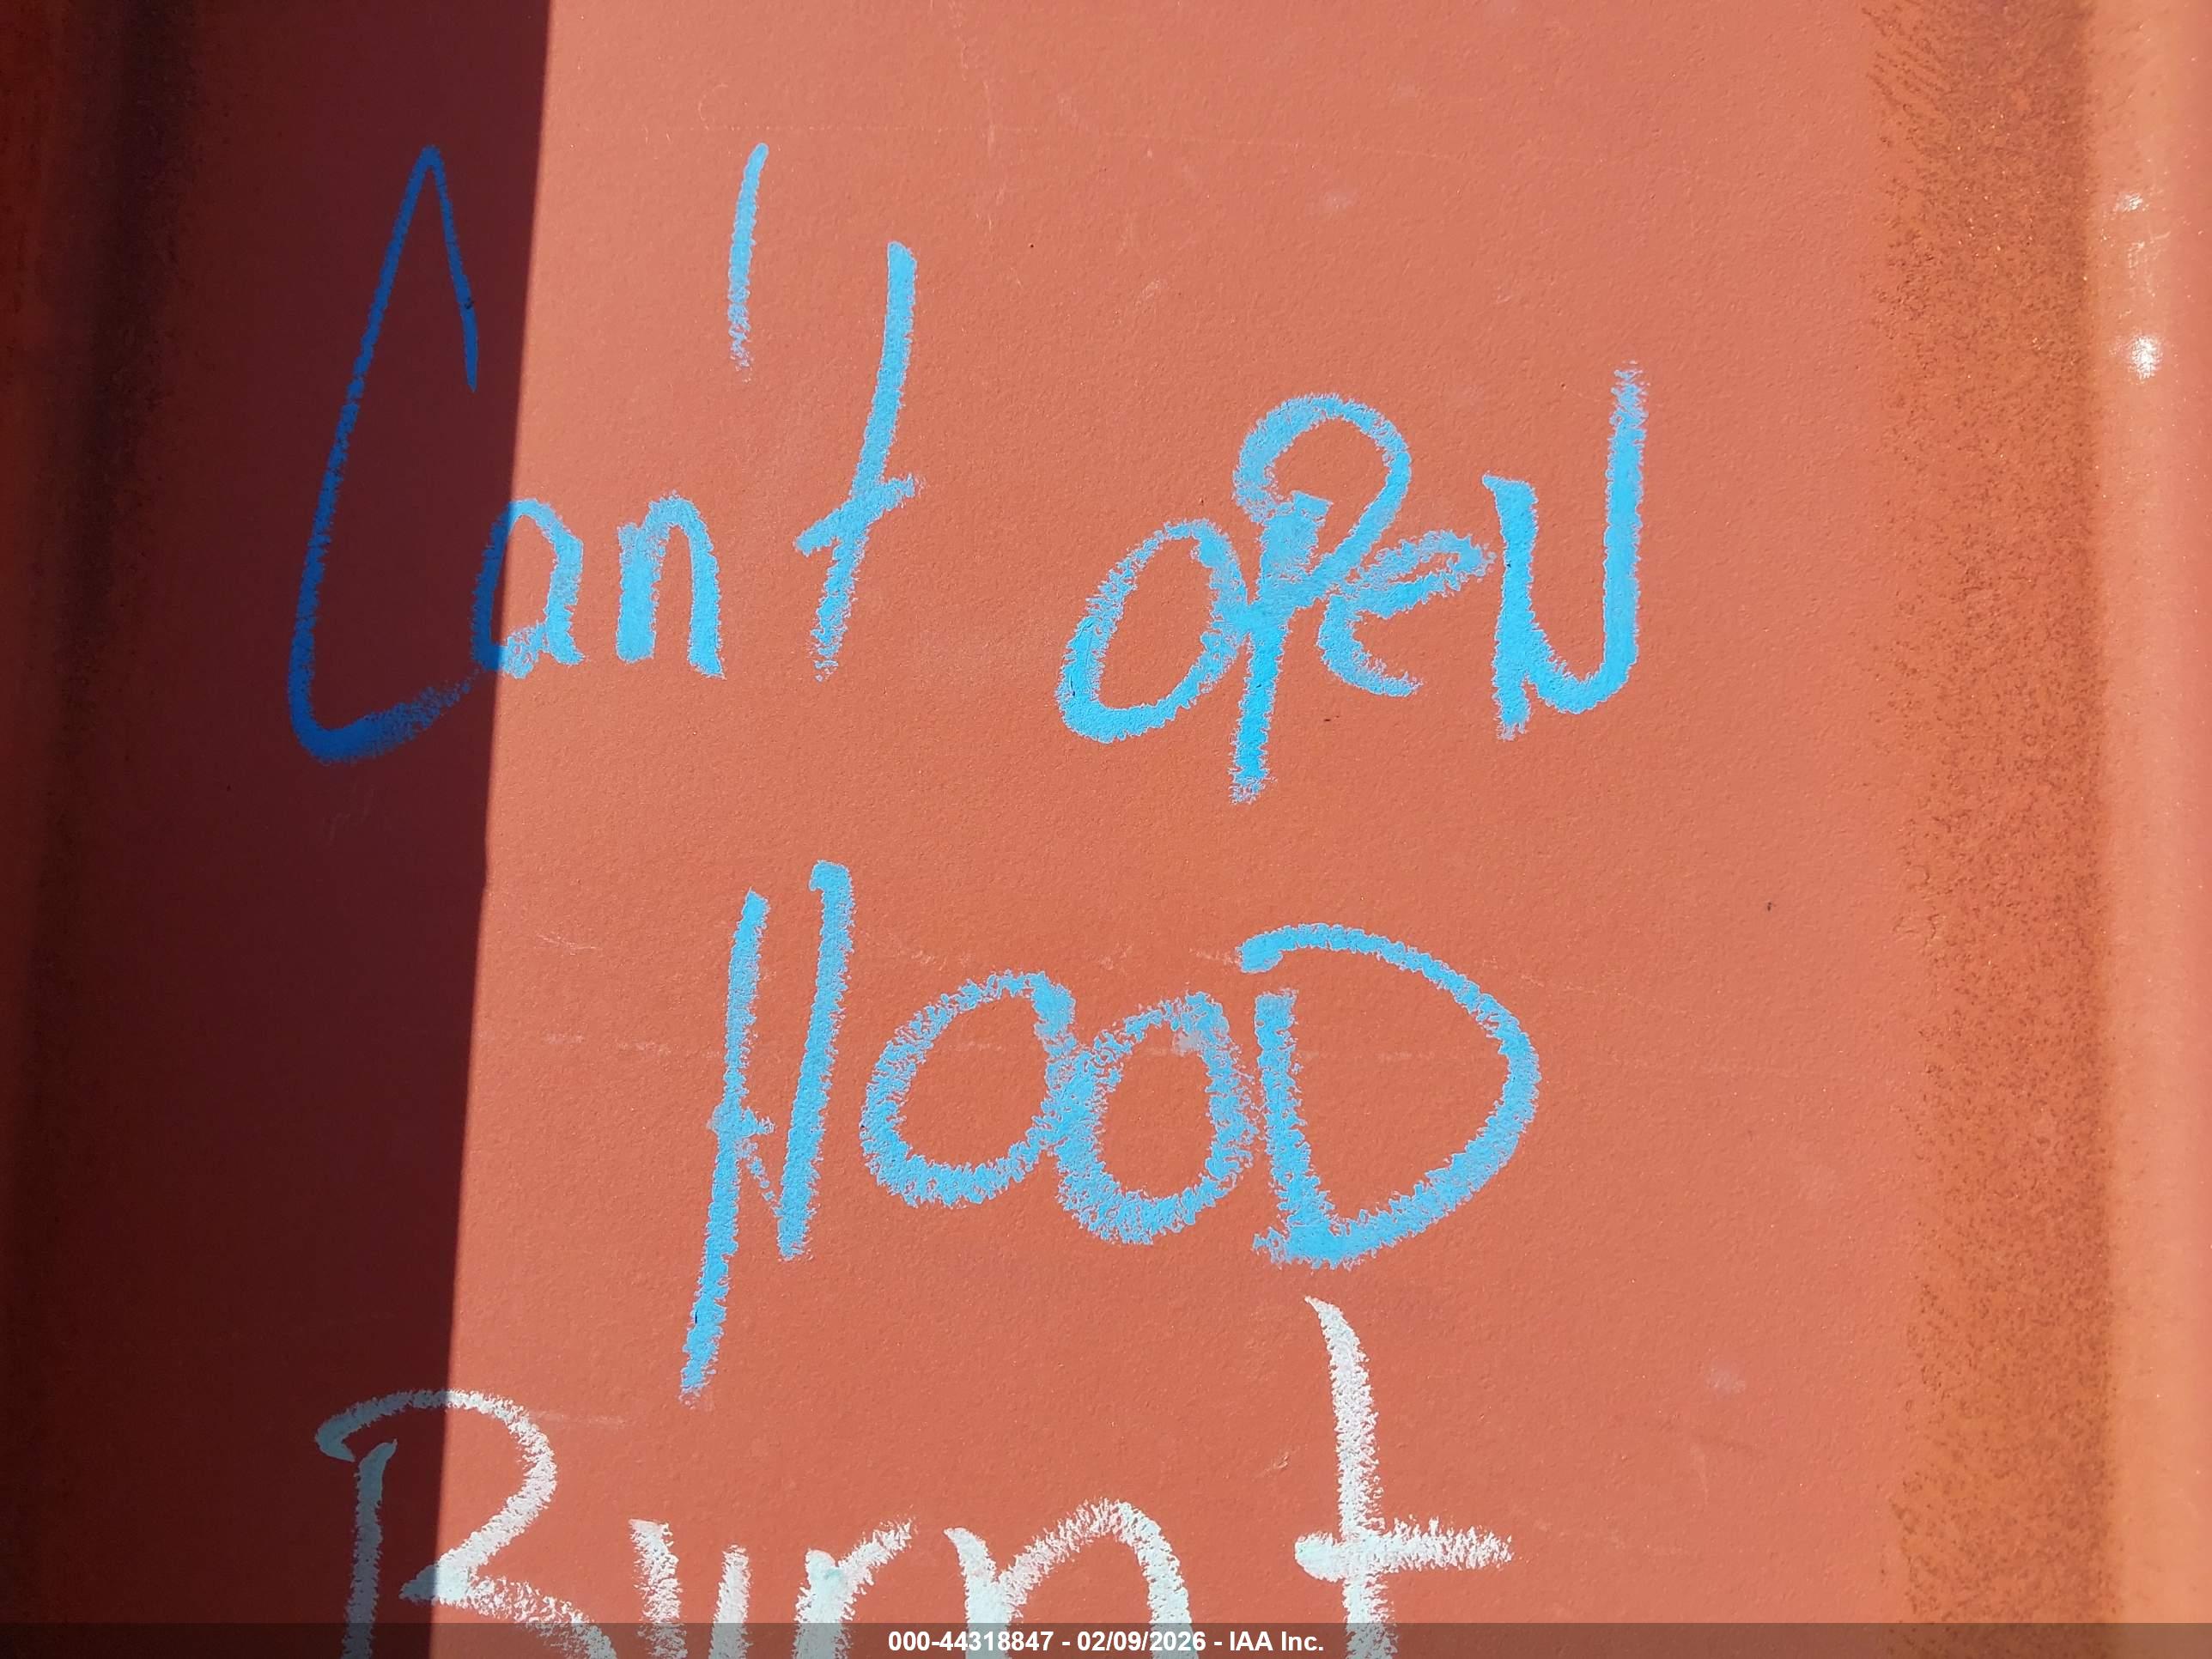 Can't opeN
HOOD
Burnt
000-44318847 - 02/09/2026 - IAA Inc.